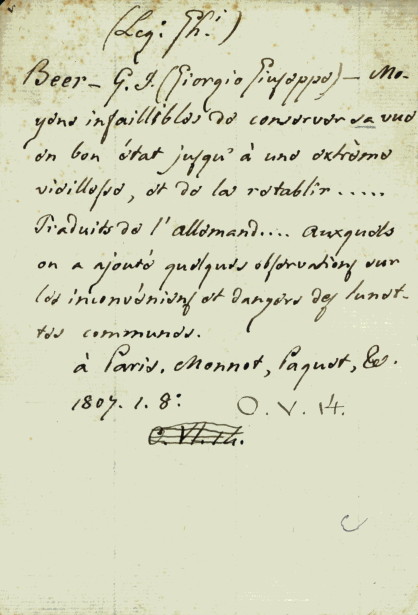 (Leg: Th:)
Beer - G. J. (Giorgio Giuseppe) - Mo-
yens infaillibles de conserver sa vue
en bon état jusqu'à une extrême
vieillesse, et de la retablir .....
Traduits de l'allemand.... auxquels
on a ajouté quelques observations sur
les inconvéniens et dangers des lunet-
tes communes.
à Paris. Monnot, Paquet, &c.
1807. 1. 8:
O. V. 14.
O. VI. 14.